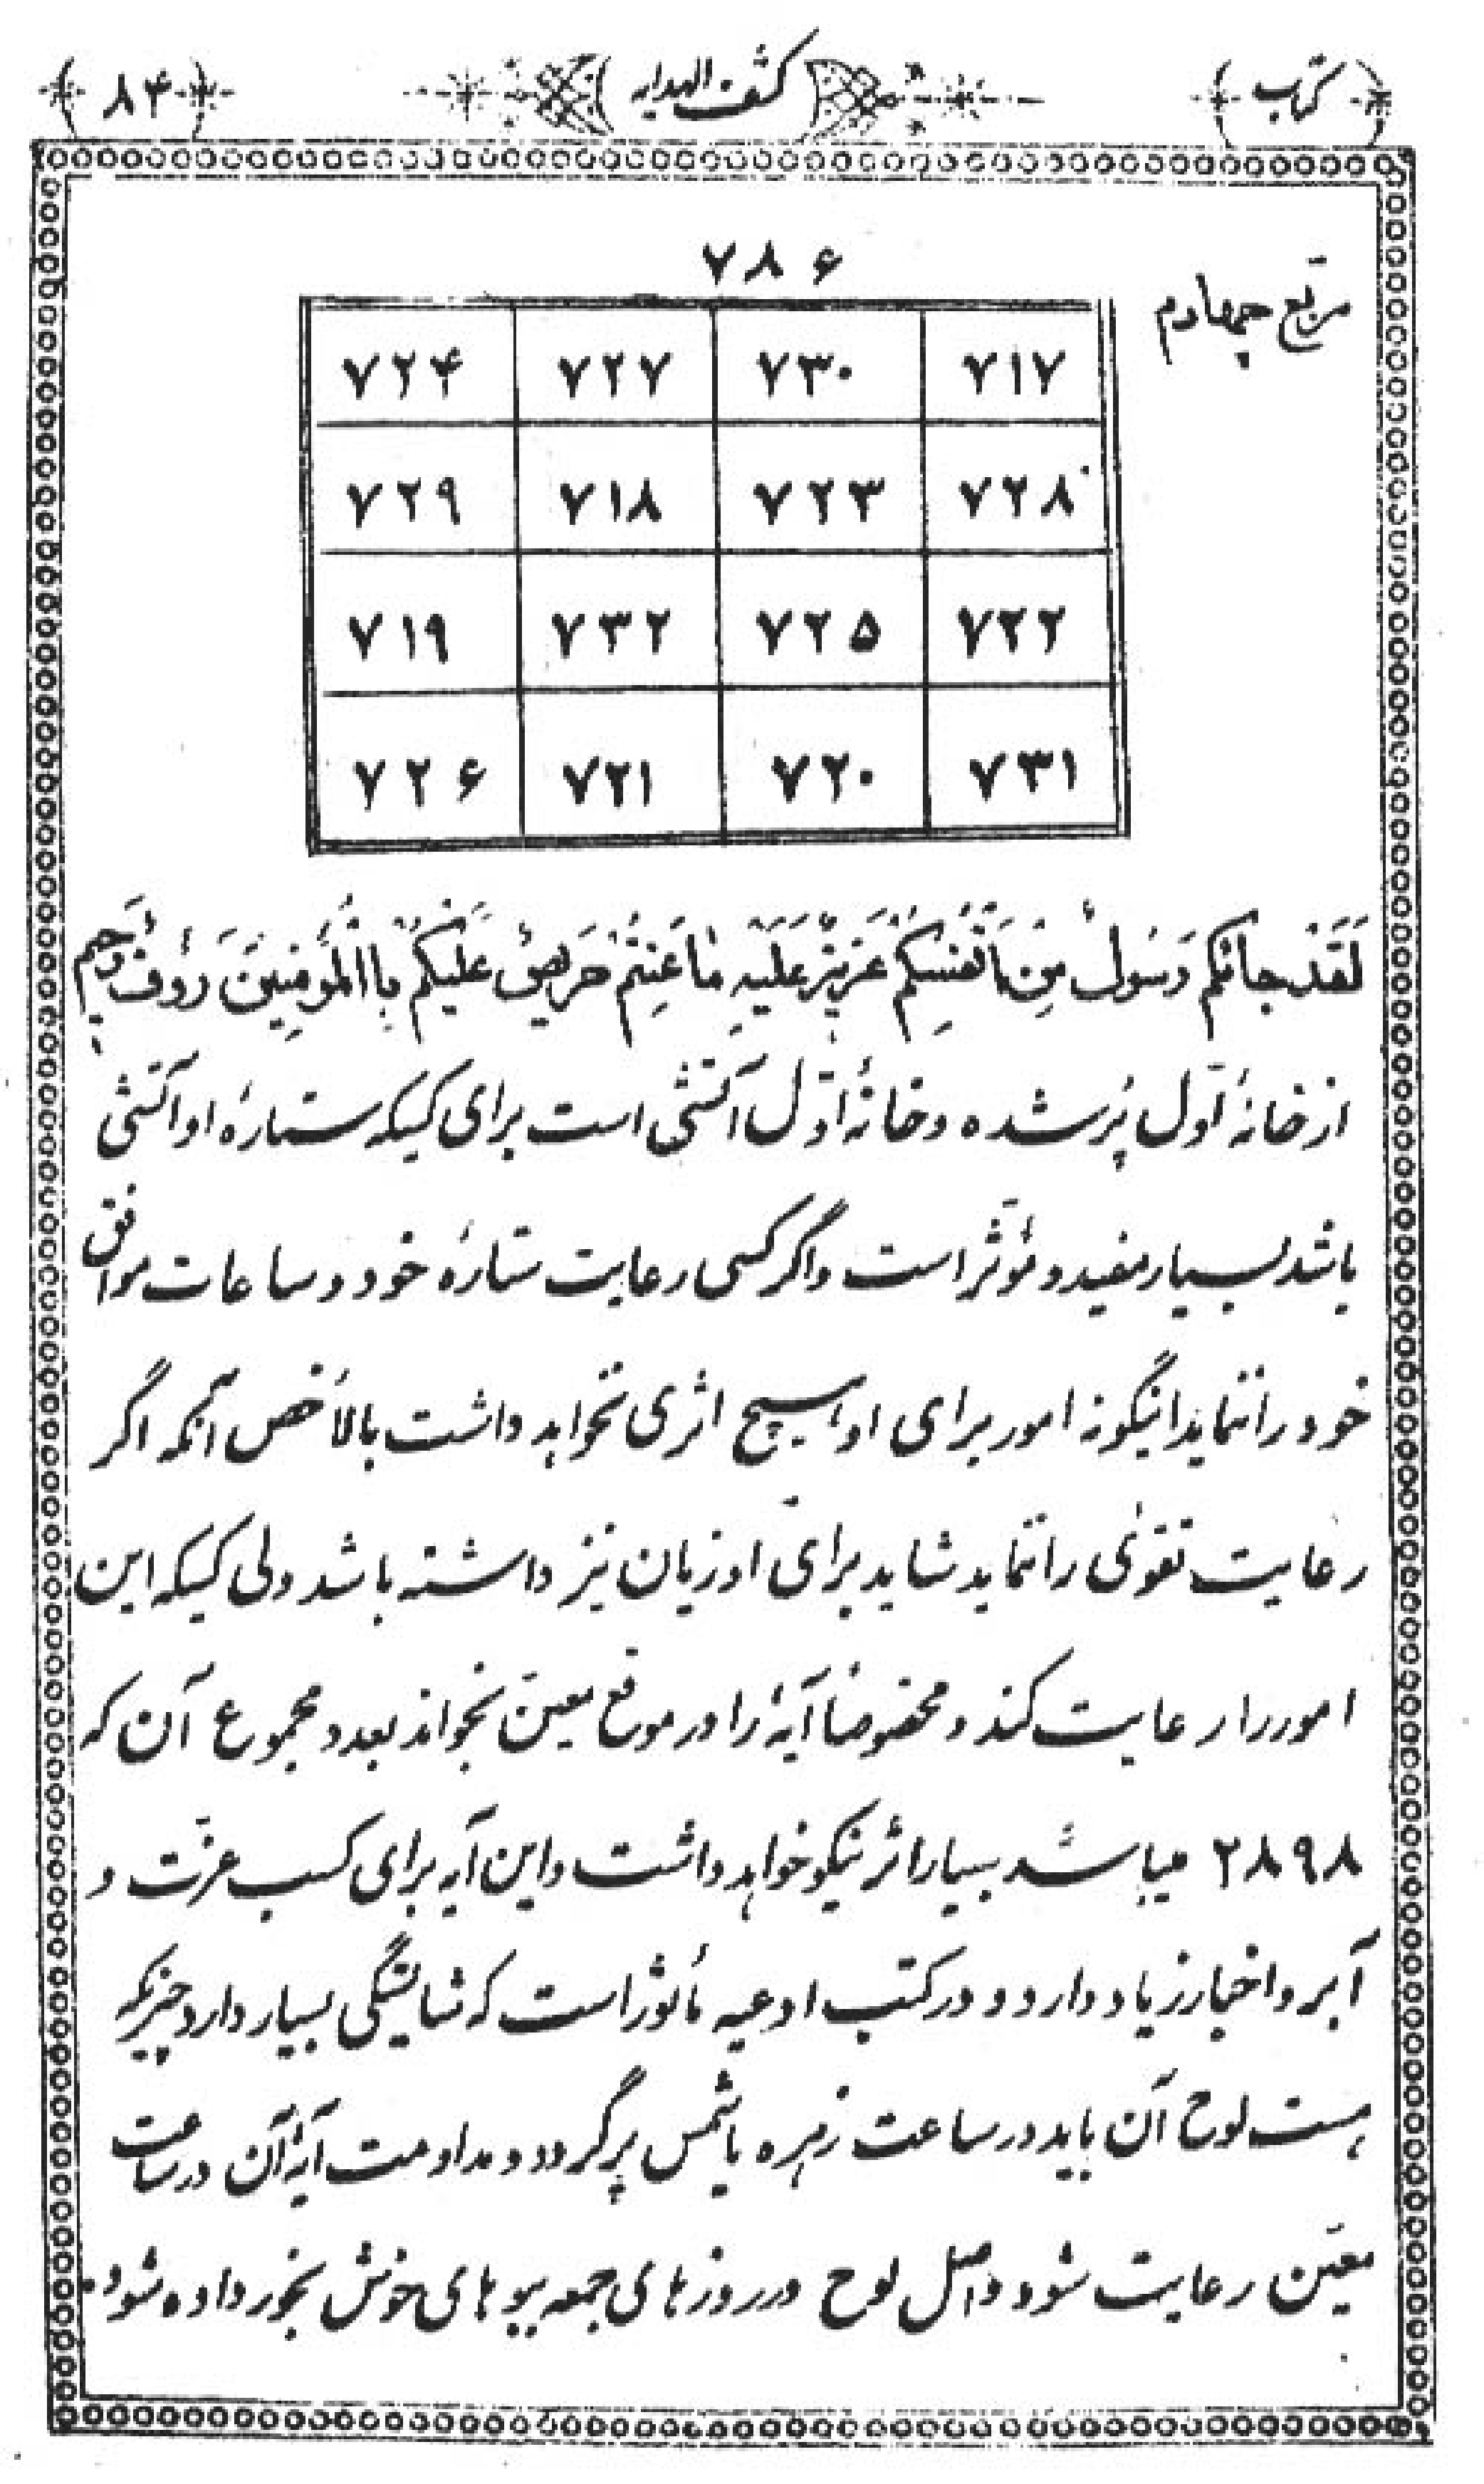 کتاب کشف الهدایه ۸۴
۷۸۶
مربّع چهارم
۷۲۴ ۷۲۷ ۷۳۰ ۷۱۷
۷۲۹ ۷۱۸ ۷۲۳ ۷۲۸
۷۱۹ ۷۳۲ ۷۲۵ ۷۲۲
۷۲۶ ۷۲۱ ۷۲۰ ۷۳۱
لَقَدْ جائَکُم رَسُولٌ مِنْ اَنْفُسِکُمْ عَزیزٌ عَلَیْهِ مٰا عَنِتُّمْ حَریصٌ عَلَیْکُمْ بِاالْمُؤمِنینَ رَؤُوفٌ رَحیم
از خانهٔ اوّل پُر شده و خانهٔ اوّل آتشی است برای کسیکه ستارهٔ او آتشی
باشد بسیار مفید و مؤثّر است و اگر کسی رعایت ستارهٔ خود و ساعات موافق
خود را ننماید اینگونه امور برای او هیچ اثری نخواهد داشت بالأخص آنکه اگر
رعایت تقوٰی را ننماید شاید برای او زیان نیز داشته باشد ولی کسیکه این
امور را رعایت کند و مخصوصاً آیهٔ را در موقع معین بخواند بعدد مجموع آن که
۲۸۹۸ میباشد بسیار اثر نیکو خواهد داشت و این آیه برای کسب عزّت و
آبرو اخبار زیاد دارد و در کتب ادعیه مأثور است که شایستگی بسیار دارد چیزیکه
هست لوح آن باید در ساعت زهره یا شمس پر گردد و مداومت آیهٔ آن در ساعت
معیّن رعایت شود و اصل لوح در روزهای جمعه ببوهای خوش بخور داده شود.